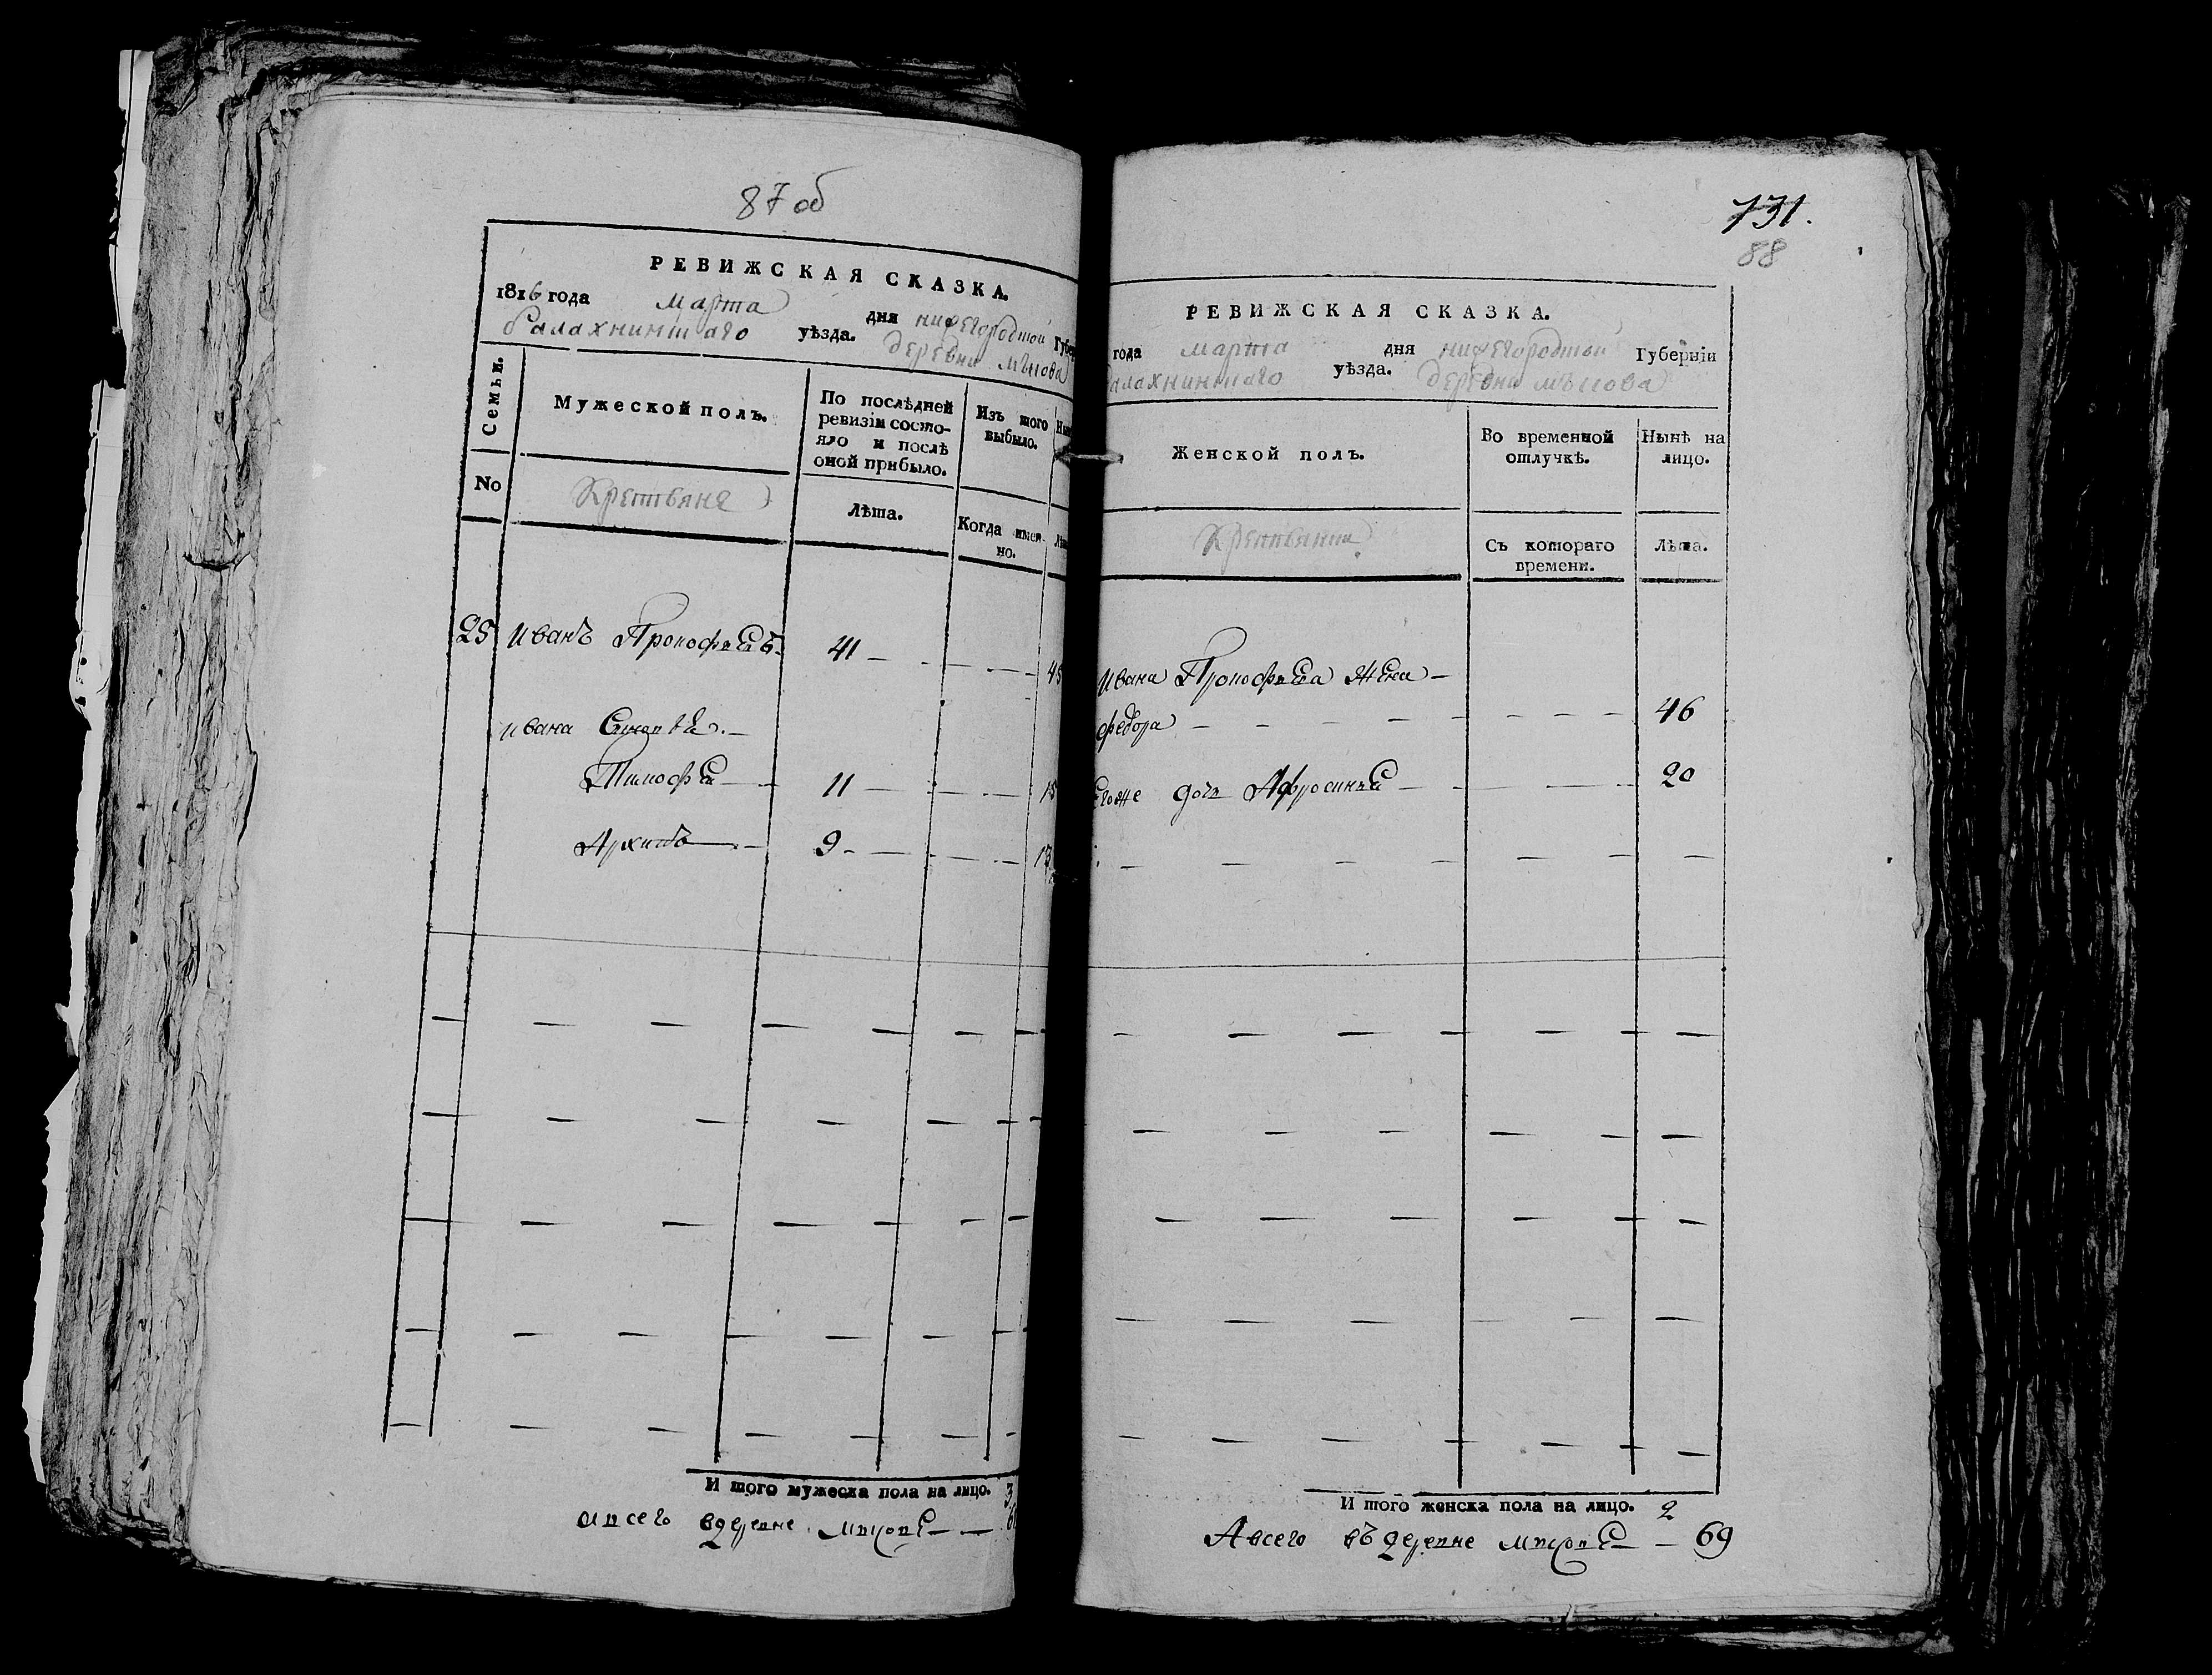 87 об
РЕВИЖСКАЯ СКАЗКА.
1816 года марта дня нижегородской Губер
балахнинскаго уѣзда. деревни мысова
Семьи.
Мужеской полъ.
По послѣдней ревизіи состо-
яло и послѣ оной прибыло.
Изъ того выбыло.
No
Крестьяне
Лѣта.
Когда имен-
но.
25 Иванъ Прокофьевъ 41 45
Ивана Сыновья
Тимофей 11 15
Архипъ 9 13
И того мужеска пола на лицо. 3
а всего вдеревне мысове
731.
88
РЕВИЖСКАЯ СКАЗКА.
года марта дня нижегородской Губерніи
алахнинскаго уѣзда. деревни мысова
Женской полъ.
Во временной отлучкѣ.
Нынѣ на лицо.
Крестьянки
Съ котораго времени.
Лѣта.
Ивана Прокофьева жена
федора 46
Егоже дочь Афросинья 20
И того женска пола на лицо. 2
А всего въ деревне мысове 69